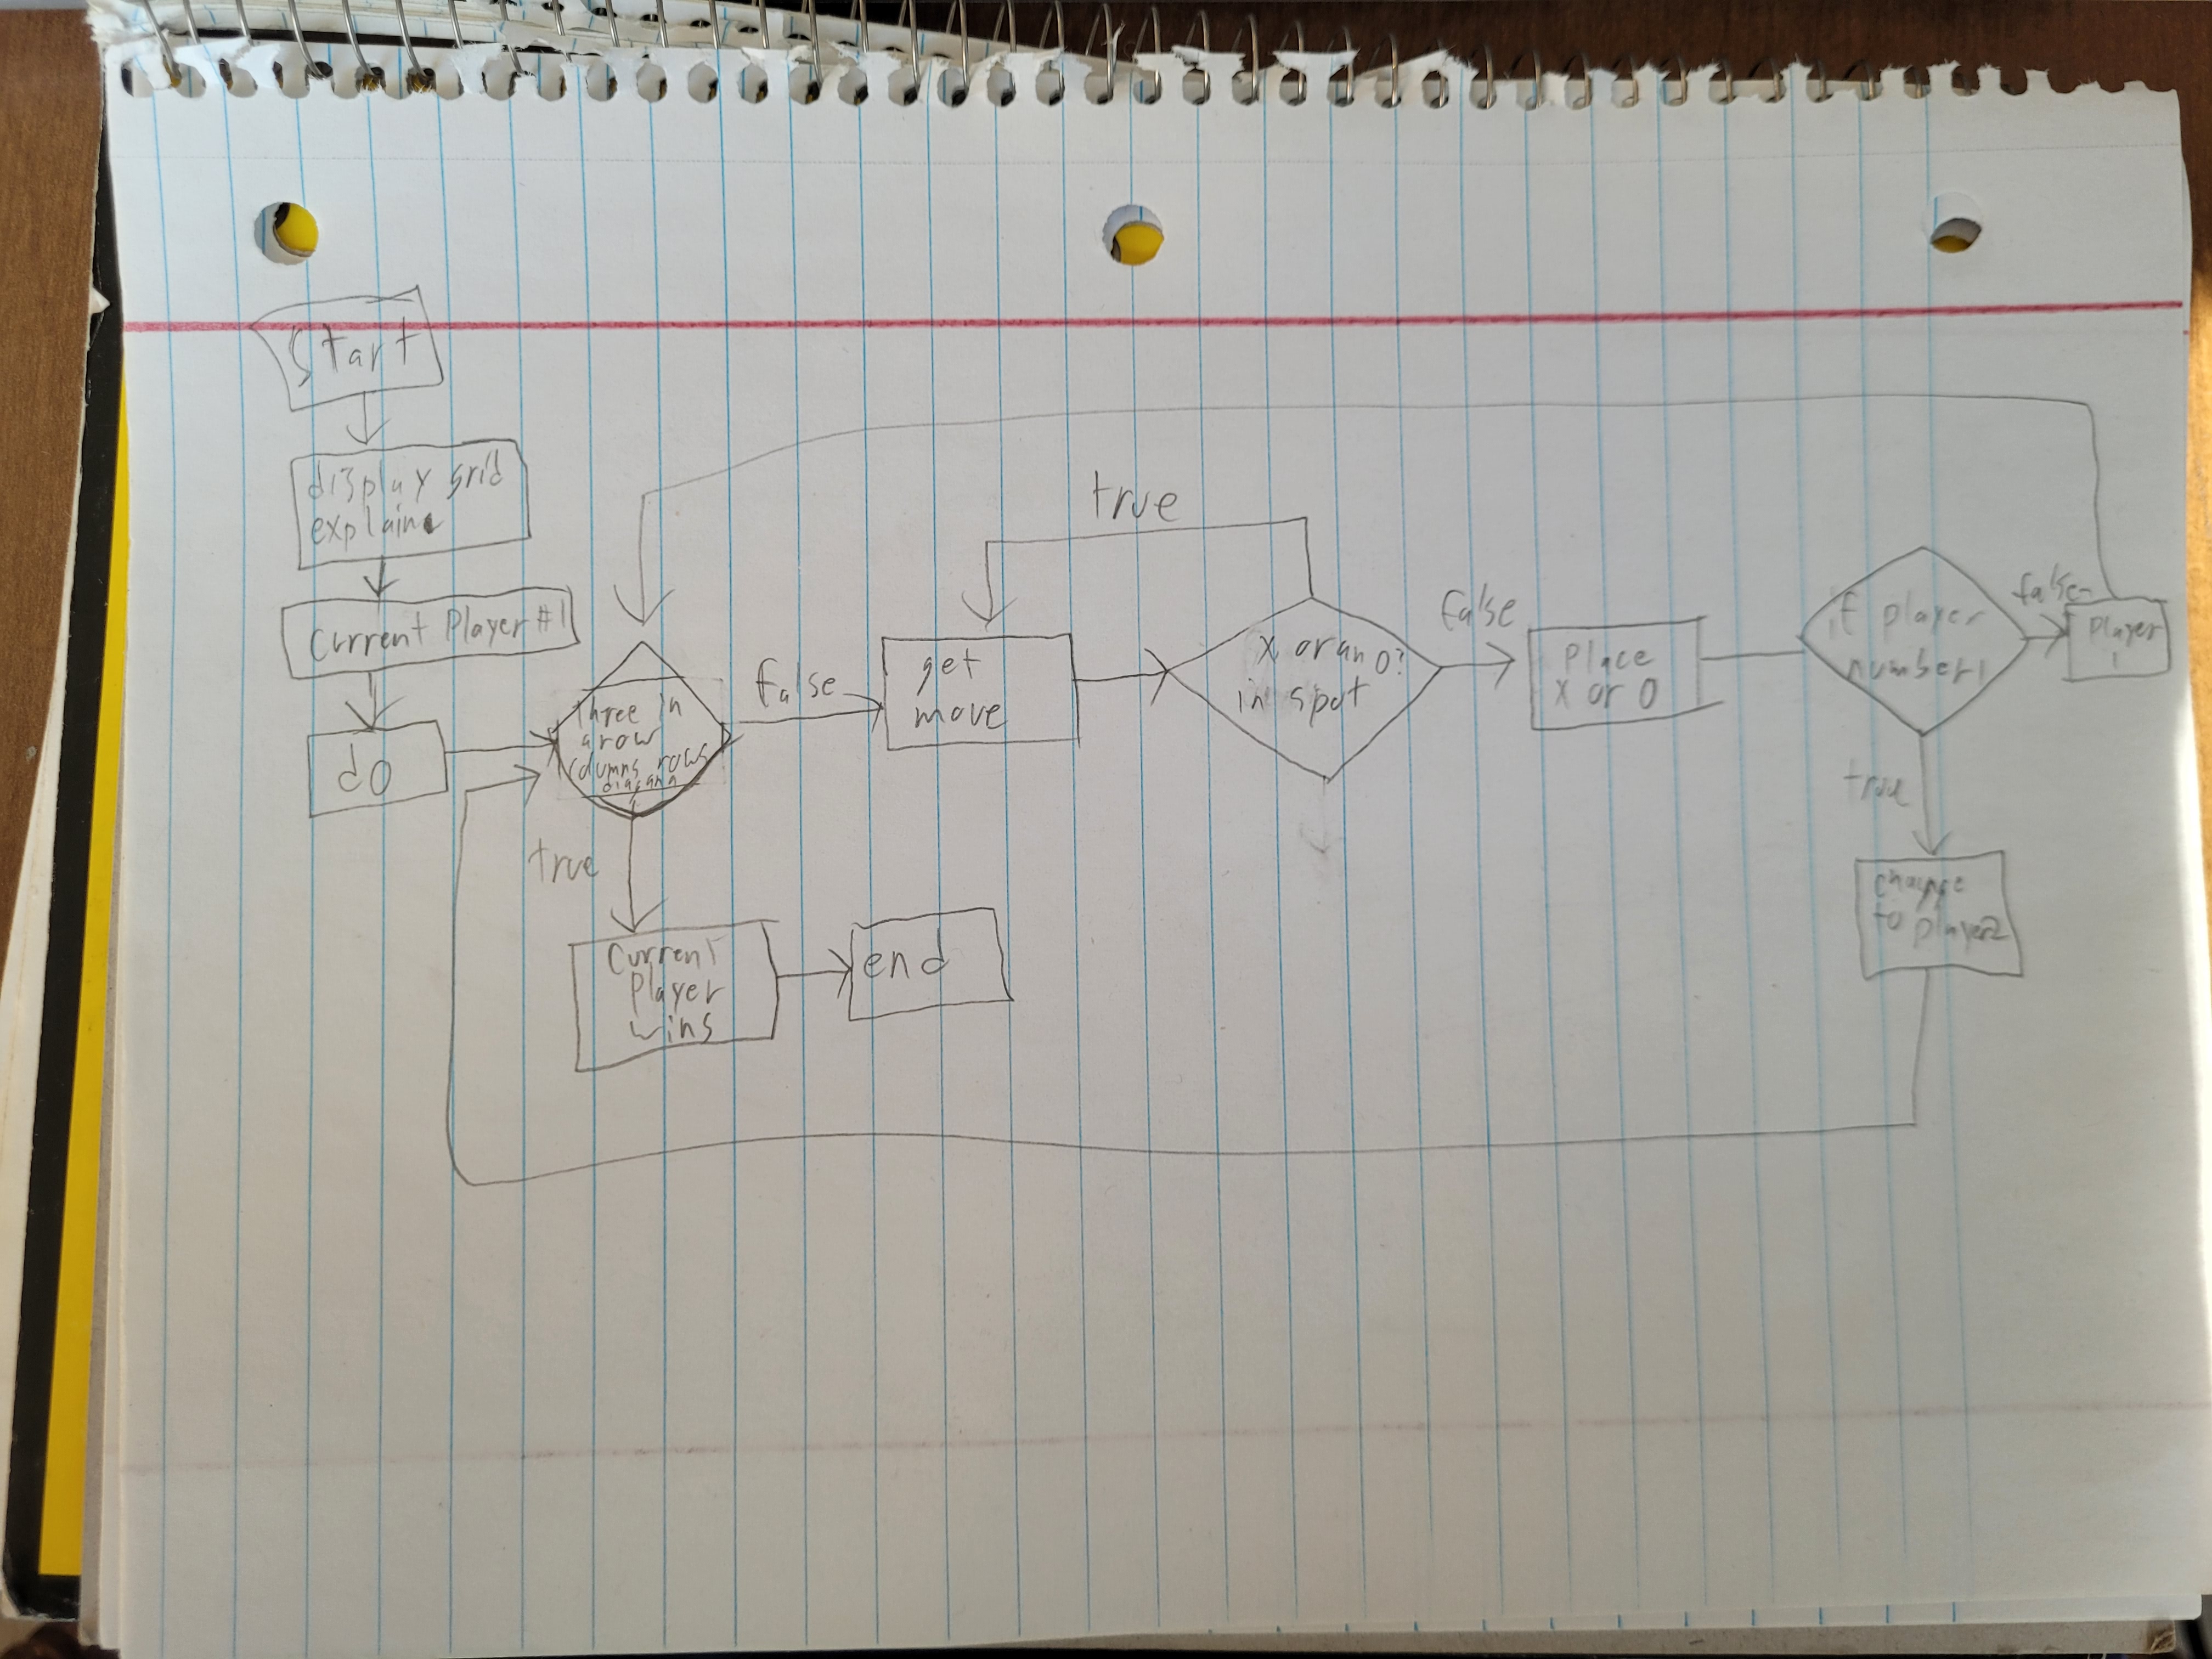 Start
display grid
explain
Current Player #1
do
three in
a row
columns rows
true
Current
player
wins
end
false
get
move
true
X or an O?
in spot
false
Place
X or O
if player
number 1
true
change
to player 2
false
Player
1